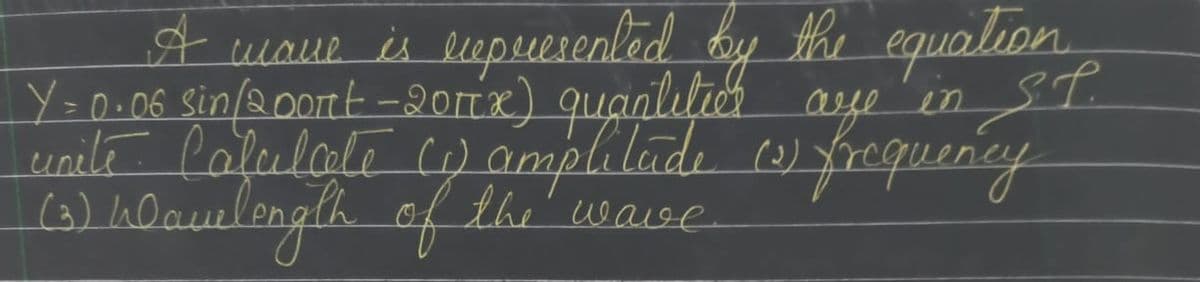 A wave is represented by the equation
Y = 0.06 sin(200πt - 20πx) quantities are in S.I.
units. Calculate (1) amplitude (2) frequency
(3) Wavelength of the wave.